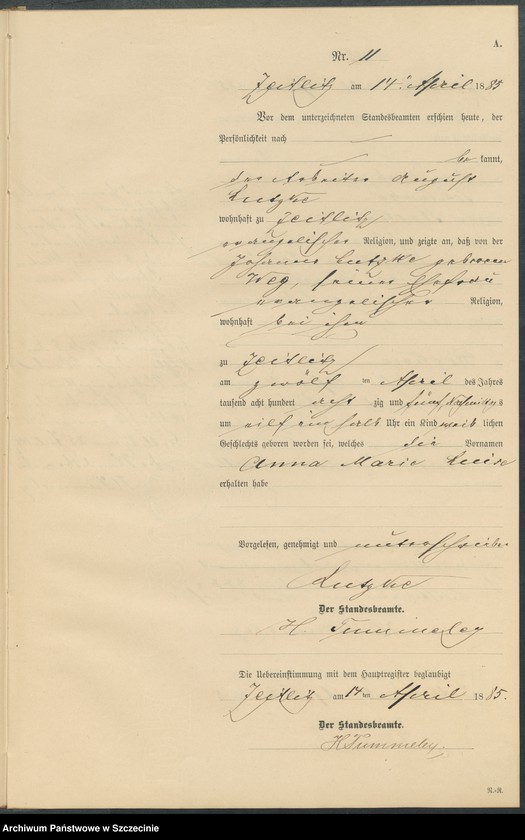 A.
Nr. 11
Zeitlitz am 14ten April 1885
Vor dem unterzeichneten Standesbeamten erschien heute, der
Persönlichkeit nach
be kannt,
der Arbeiter August
Lutzke
wohnhaft zu Zeitlitz
evangelischer Religion, und zeigte an, daß von der
Johanne Lutzke geborenen
Weg, seiner Ehefrau
evangelischer Religion,
wohnhaft bei ihm
zu Zeitlitz
am zwölften April des Jahres
tausend acht hundert acht zig und fünf, Nachmittags
um eilf ein halb Uhr ein Kind weib lichen
Geschlechts geboren worden sei, welches die Vornamen
Anna Marie Luise
erhalten habe
Vorgelesen, genehmigt und unterschrieben
Lutzke
Der Standesbeamte.
H. Tummeley
Die Uebereinstimmung mit dem Hauptregister beglaubigt
Zeitlitz am 14ten April 1885.
Der Standesbeamte.
H Tummeley.
Archiwum Państwowe w Szczecinie